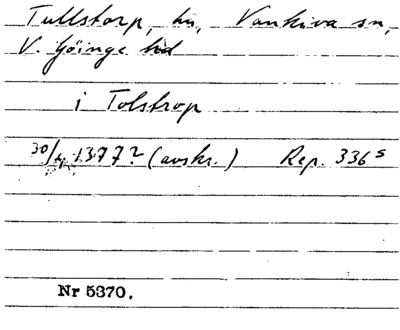 Tullstorp, hn, Vankiva sn,
V. Göinge hd
i Tolstrop
30/4 1377? (avskr.) Rep. 336 s
Nr 5370.